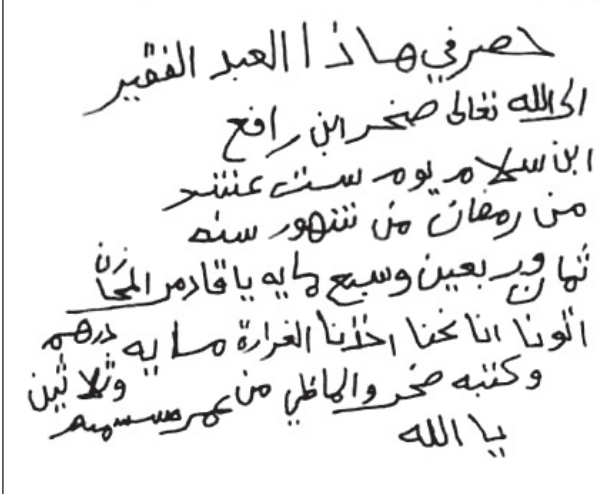 حصر في هاذا العبد الفقير
الى الله تعالى صخر ابن رافع
ابن سلامر يوم ست عشر
من رمضان من شهور سنه
ثمان وربعين وسبع مايه يا قادمر المخازن
اتونا انا نحنا اخذنا الغرارة مايه درهم
وثلاثين وكتبه صخر والماظي من عمر
يا الله